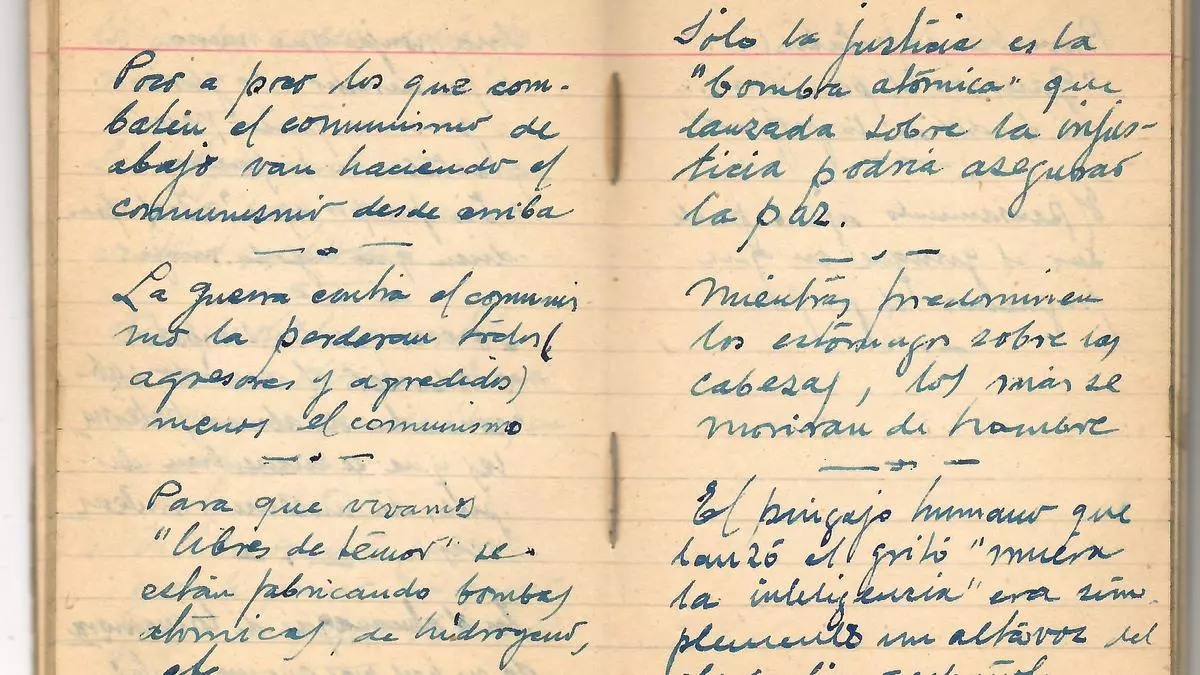 Poco a poco los que com-
baten el comunismo de
abajo van haciendo el
comunismo desde arriba
La guerra contra el comunis
mo la perderan todos (
agresores y agredidos)
menos el comunismo
Para que vivamos
"libres de temor" se
están fabricando bombas
atómicas, de hidrogeno,
etc.
Sólo la justicia es la
"bomba atómica" que
lanzada sobre la injus-
ticia podria asegurar
la paz.
Mientras predominen
los estómagos sobre las
cabezas, los más se
moriran de hambre
El pingajo humano que
lanzó el grito "muera
la inteligenzia" era sim-
plemente un altavoz del